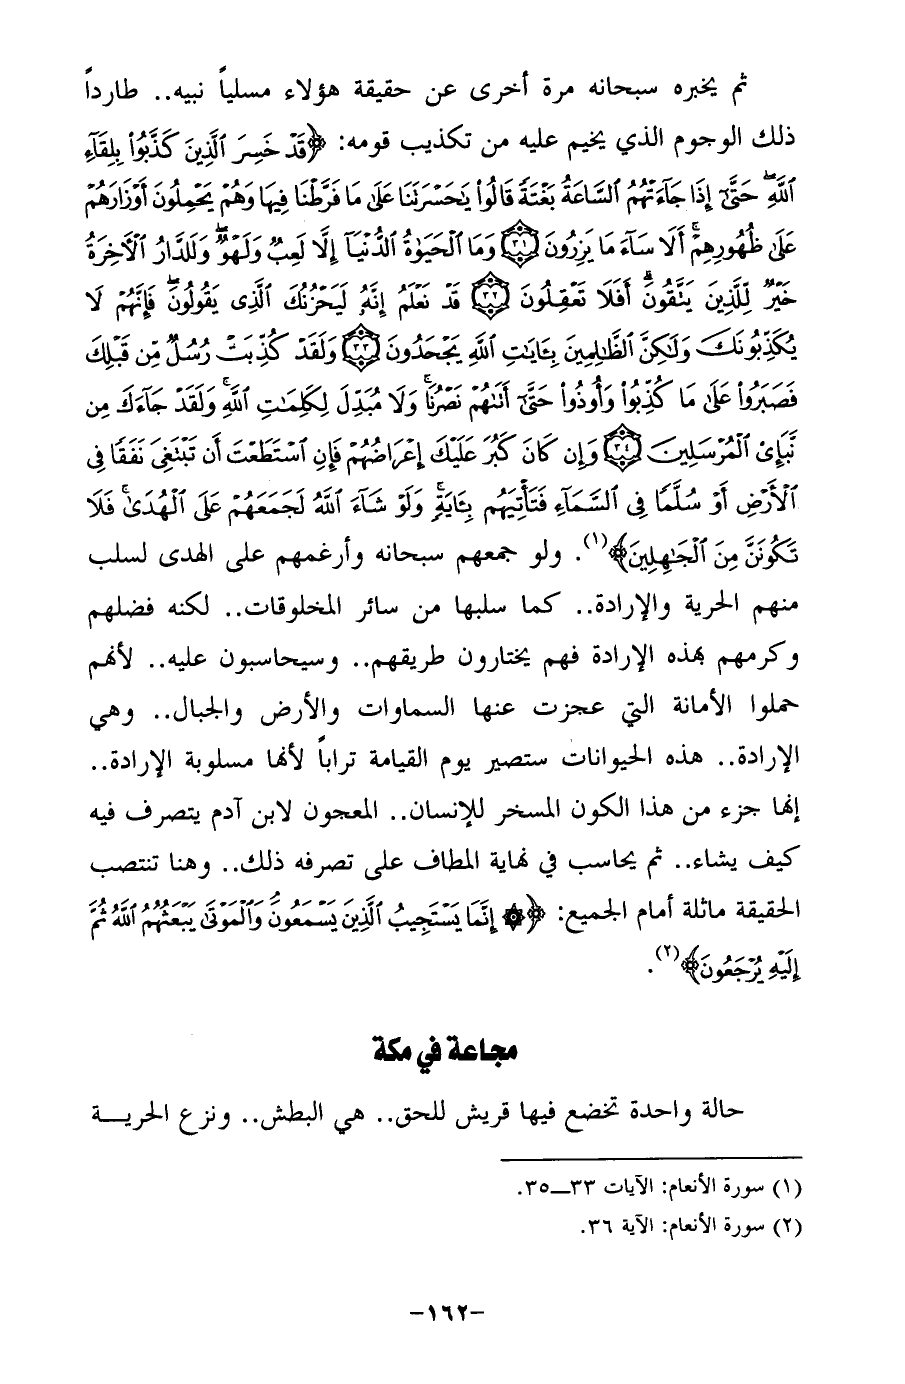 ثم يخبره سبحانه مرة أخرى عن حقيقة هؤلاء مسلياً نبيه.. طارداً
ذلك الوجوم الذي يخيم عليه من تكذيب قومه: ﴿قَدْ خَسِرَ ٱلَّذِينَ كَذَّبُوا۟ بِلِقَآءِ
ٱللَّهِۖ حَتَّىٰٓ إِذَا جَآءَتْهُمُ ٱلسَّاعَةُ بَغْتَةً قَالُوا۟ يَٰحَسْرَتَنَا عَلَىٰ مَا فَرَّطْنَا فِيهَا وَهُمْ يَحْمِلُونَ أَوْزَارَهُمْ
عَلَىٰ ظُهُورِهِمْۚ أَلَا سَآءَ مَا يَزِرُونَ ۝٣١ وَمَا ٱلْحَيَوٰةُ ٱلدُّنْيَآ إِلَّا لَعِبٌ وَلَهْوٌۖ وَلَلدَّارُ ٱلْءَاخِرَةُ
خَيْرٌ لِّلَّذِينَ يَتَّقُونَۗ أَفَلَا تَعْقِلُونَ ۝٣٢ قَدْ نَعْلَمُ إِنَّهُۥ لَيَحْزُنُكَ ٱلَّذِى يَقُولُونَۖ فَإِنَّهُمْ لَا
يُكَذِّبُونَكَ وَلَٰكِنَّ ٱلظَّٰلِمِينَ بِـَٔايَٰتِ ٱللَّهِ يَجْحَدُونَ ۝٣٣ وَلَقَدْ كُذِّبَتْ رُسُلٌ مِّن قَبْلِكَ
فَصَبَرُوا۟ عَلَىٰ مَا كُذِّبُوا۟ وَأُوذُوا۟ حَتَّىٰٓ أَتَىٰهُمْ نَصْرُنَاۚ وَلَا مُبَدِّلَ لِكَلِمَٰتِ ٱللَّهِۚ وَلَقَدْ جَآءَكَ مِن
نَّبَإِى۟ ٱلْمُرْسَلِينَ ۝٣٤ وَإِن كَانَ كَبُرَ عَلَيْكَ إِعْرَاضُهُمْ فَإِنِ ٱسْتَطَعْتَ أَن تَبْتَغِىَ نَفَقًا فِى
ٱلْأَرْضِ أَوْ سُلَّمًا فِى ٱلسَّمَآءِ فَتَأْتِيَهُم بِـَٔايَةٍۚ وَلَوْ شَآءَ ٱللَّهُ لَجَمَعَهُمْ عَلَى ٱلْهُدَىٰۚ فَلَا
تَكُونَنَّ مِنَ ٱلْجَٰهِلِينَ﴾(١). ولو جمعهم سبحانه وأرغمهم على الهدى لسلب
منهم الحرية والإرادة.. كما سلبها من سائر المخلوقات.. لكنه فضلهم
وكرمهم بهذه الإرادة فهم يختارون طريقهم.. وسيحاسبون عليه.. لأنهم
حملوا الأمانة التي عجزت عنها السماوات والأرض والجبال.. وهي
الإرادة.. هذه الحيوانات ستصير يوم القيامة تراباً لأنها مسلوبة الإرادة..
إنها جزء من هذا الكون المسخر للإنسان.. المعجون لابن آدم يتصرف فيه
كيف يشاء.. ثم يحاسب في نهاية المطاف على تصرفه ذلك.. وهنا تنتصب
الحقيقة ماثلة أمام الجميع: ﴿۞ إِنَّمَا يَسْتَجِيبُ ٱلَّذِينَ يَسْمَعُونَۘ وَٱلْمَوْتَىٰ يَبْعَثُهُمُ ٱللَّهُ ثُمَّ
إِلَيْهِ يُرْجَعُونَ﴾(٢).
مجاعة في مكة
حالة واحدة تخضع فيها قريش للحق.. هي البطش.. ونزع الحريـــة
(١) سورة الأنعام: الآيات ٣٣ــ٣٥.
(٢) سورة الأنعام: الآية ٣٦.
-١٦٢-